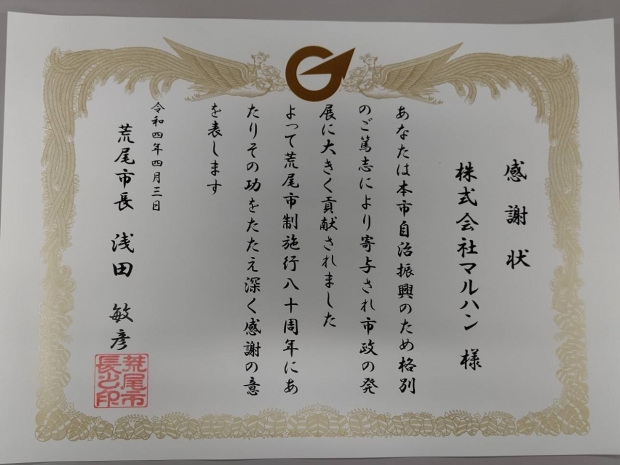 感謝状
株式会社マルハン 様
あなたは本市自治振興のため格別
のご篤志により寄与され市政の発
展に大きく貢献されました
よって荒尾市制施行八十周年にあ
たりその功をたたえ深く感謝の意
を表します
令和四年四月三日
荒尾市長 浅田 敏彦
荒尾市
長公印